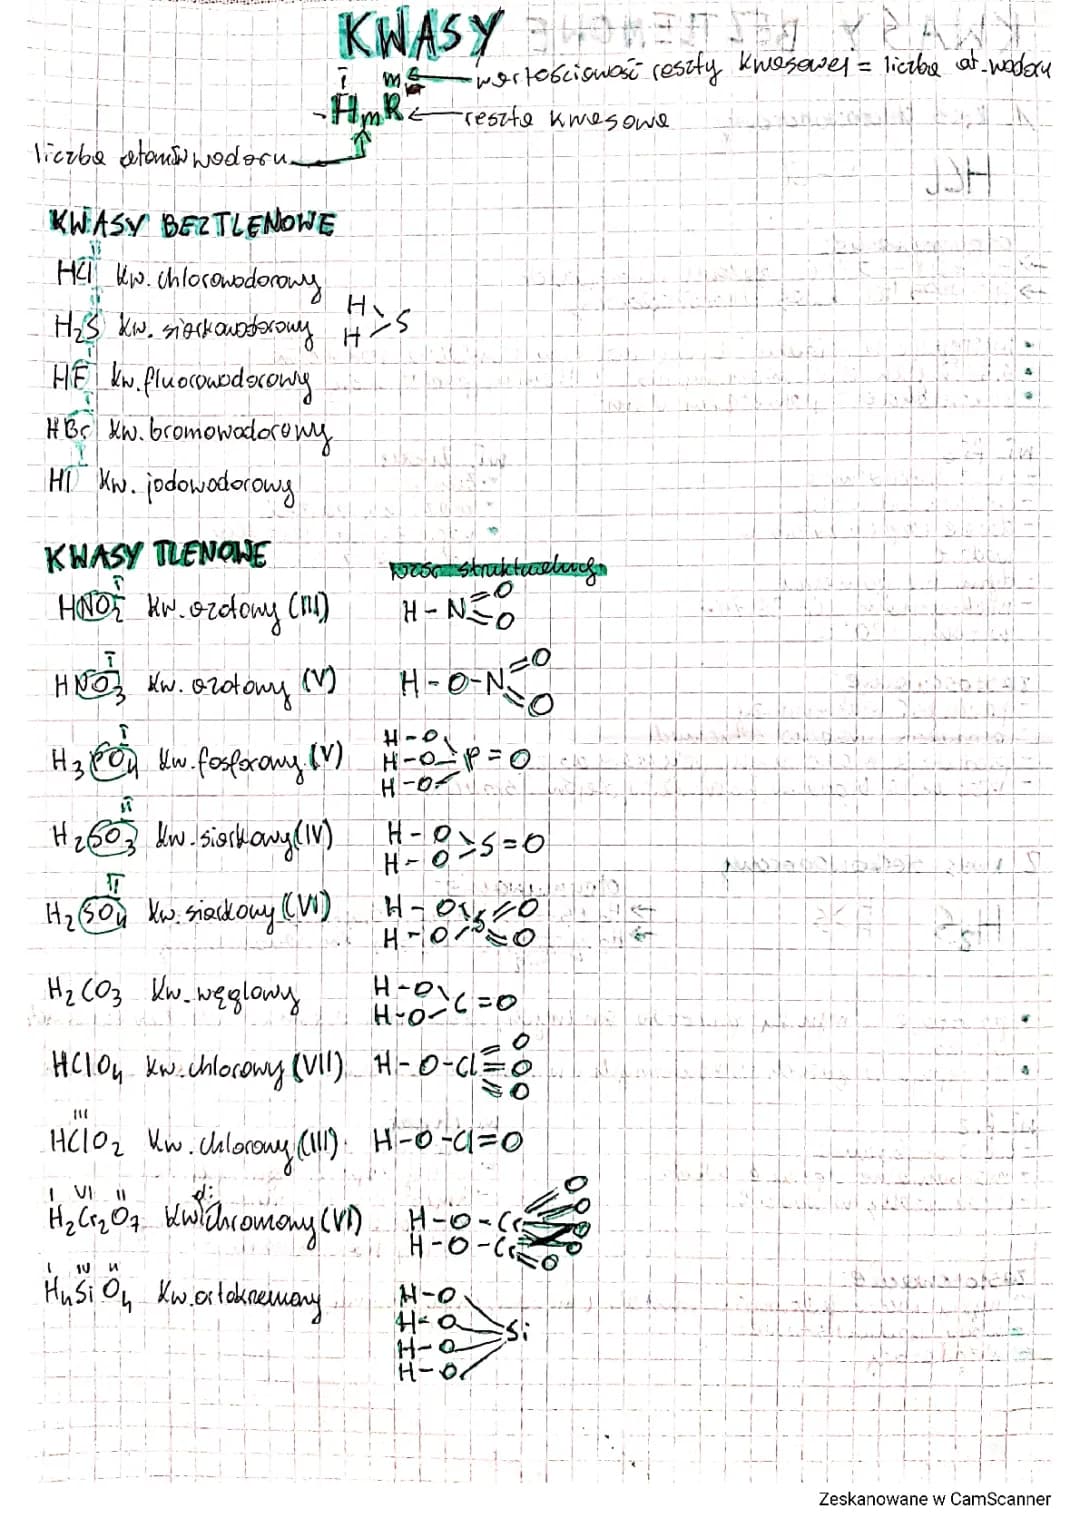 KWASY
I m
wartościowość reszty kwasowej = liczba at. wodoru
HmR
reszta kwasowa
liczba atomów wodoru
KWASY BEZTLENOWE
HCl kw. chlorowodorowy
H2S kw. siarkowodorowy H H S
HF kw. fluorowodorowy
HBr kw. bromowodorowy
HI kw. jodowodorowy
KWASY TLENOWE
wzór strukturalny
HNO2 kw. azotowy (III) H-N=O O
HNO3 kw. azotowy (V) H-O-N=O =O
H3PO4 kw. fosforowy (V) H-O H-O H-O P=O
H2SO3 kw. siarkowy (IV) H-O H-O S=O
H2SO4 kw. siarkowy (VI) H-O H-O S=O =O
H2CO3 kw. węglowy H-O H-O C=O
HClO4 kw. chlorowy (VII) H-O-Cl=O =O =O
III
HClO2 kw. chlorowy (III) H-O-Cl=O
I VI II di
H2Cr2O7 kw. chromowy (VI) H-O-Cr H-O-Cr O O O O O
I IV II
H4SiO4 kw. ortokrzemowy H-O H-O H-O H-O Si
Zeskanowane w CamScanner